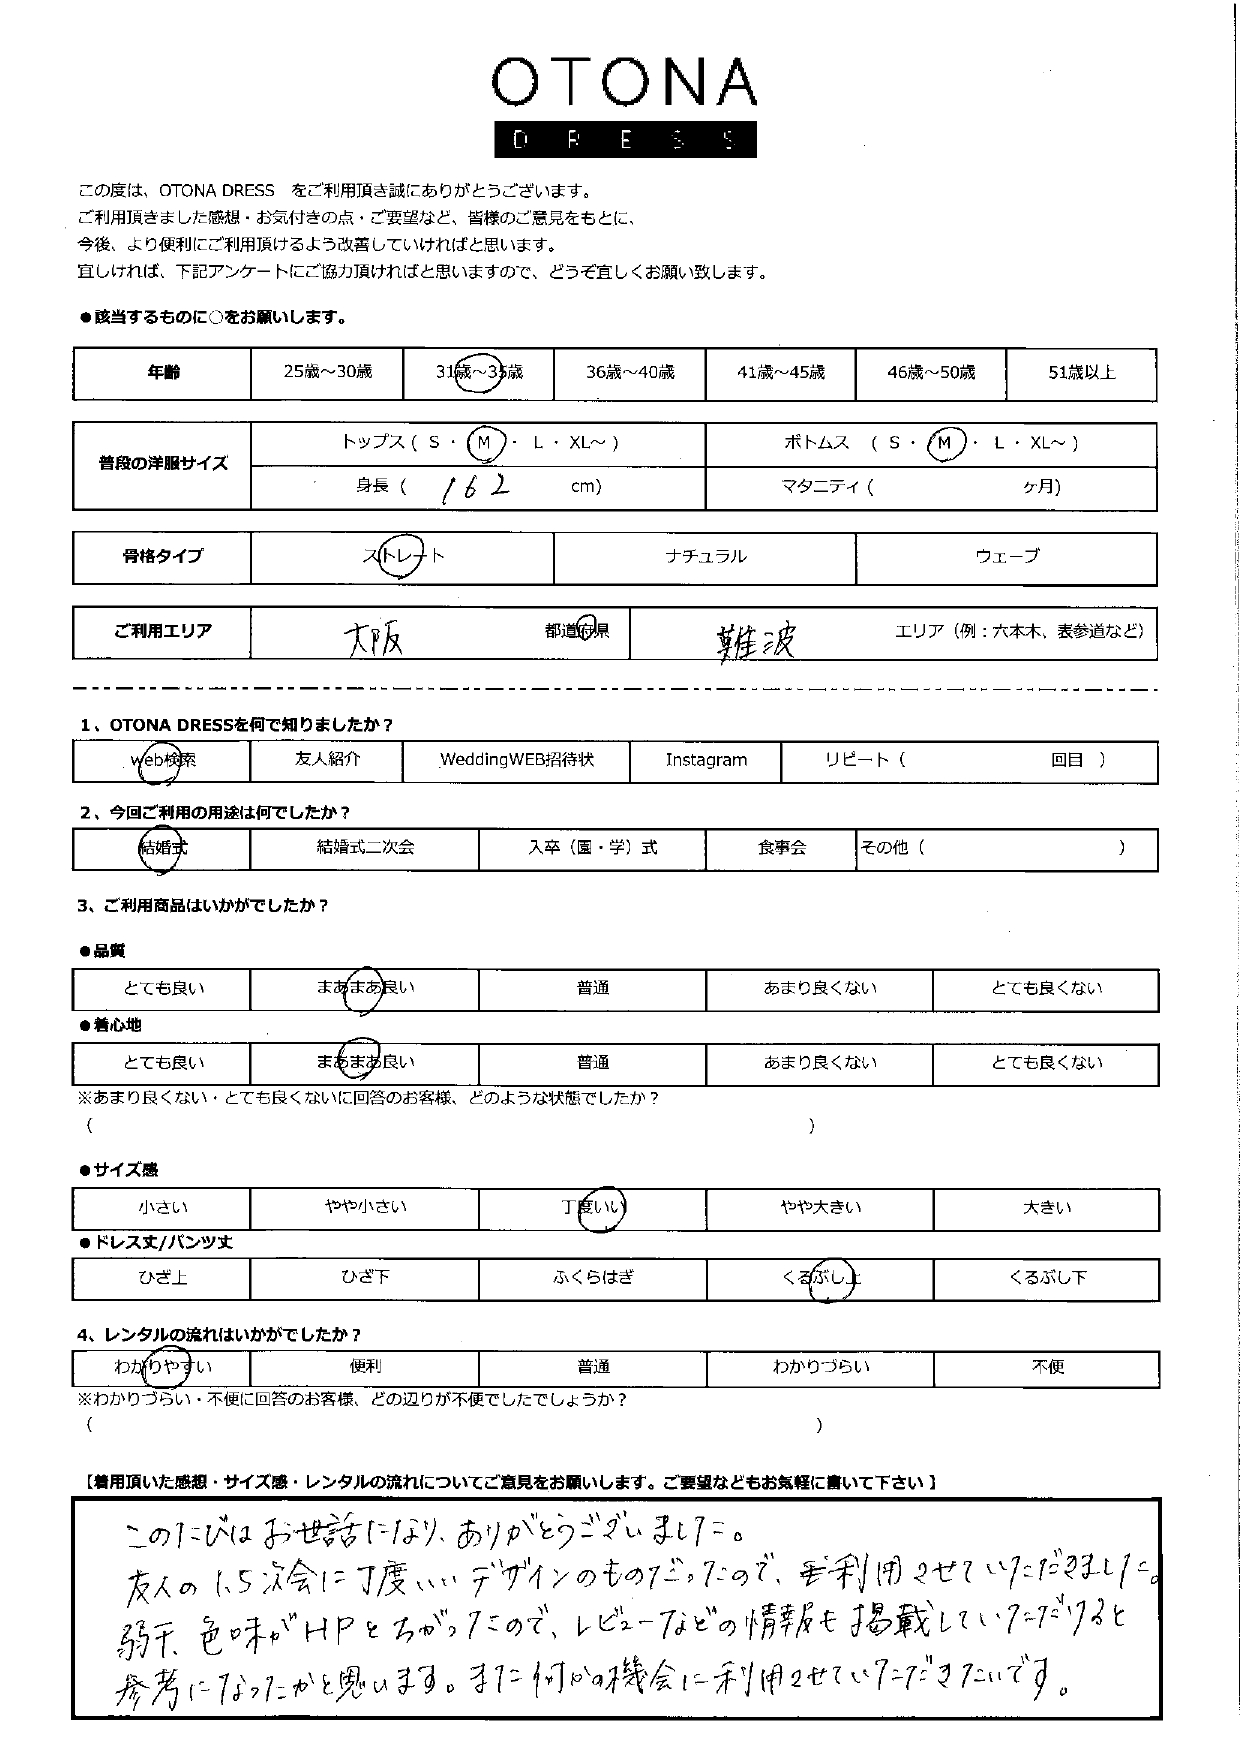 OTONA
DRESS
この度は、OTONA DRESS をご利用頂き誠にありがとうございます。
ご利用頂きました感想・お気付きの点・ご要望など、皆様のご意見をもとに、
今後、より便利にご利用頂けるよう改善していければと思います。
宜しければ、下記アンケートにご協力頂ければと思いますので、どうぞ宜しくお願い致します。
●該当するものに○をお願いします。
年齢 25歳～30歳 31歳～35歳 36歳～40歳 41歳～45歳 46歳～50歳 51歳以上
普段の洋服サイズ トップス ( S ・ M ・ L ・ XL～ ) ボトムス ( S ・ M ・ L ・ XL～ )
身長 ( 162 cm) マタニティ ( ヶ月)
骨格タイプ ストレート ナチュラル ウェーブ
ご利用エリア 大阪 都道府県 難波 エリア（例：六本木、表参道など）
1、OTONA DRESSを何で知りましたか？
web検索 友人紹介 WeddingWEB招待状 Instagram リピート（ 回目 ）
2、今回ご利用の用途は何でしたか？
結婚式 結婚式二次会 入卒（園・学）式 食事会 その他（ ）
3、ご利用商品はいかがでしたか？
●品質
とても良い まあまあ良い 普通 あまり良くない とても良くない
●着心地
とても良い まあまあ良い 普通 あまり良くない とても良くない
※あまり良くない・とても良くないに回答のお客様、どのような状態でしたか？
（ ）
●サイズ感
小さい やや小さい 丁度いい やや大きい 大きい
●ドレス丈/パンツ丈
ひざ上 ひざ下 ふくらはぎ くるぶし上 くるぶし下
4、レンタルの流れはいかがでしたか？
わかりやすい 便利 普通 わかりづらい 不便
※わかりづらい・不便に回答のお客様、どの辺りが不便でしたでしょうか？
（ ）
【着用頂いた感想・サイズ感・レンタルの流れについてご意見をお願いします。ご要望などもお気軽に書いて下さい】
このたびはお世話になり、ありがとうございました。
友人の1.5次会に丁度いいデザインのものだったので、利用させていただきました。
弱干、色味がHPとちがったので、レビューなどの情報も掲載していただけると
参考になったかと思います。また何かの機会に利用させていただきたいです。